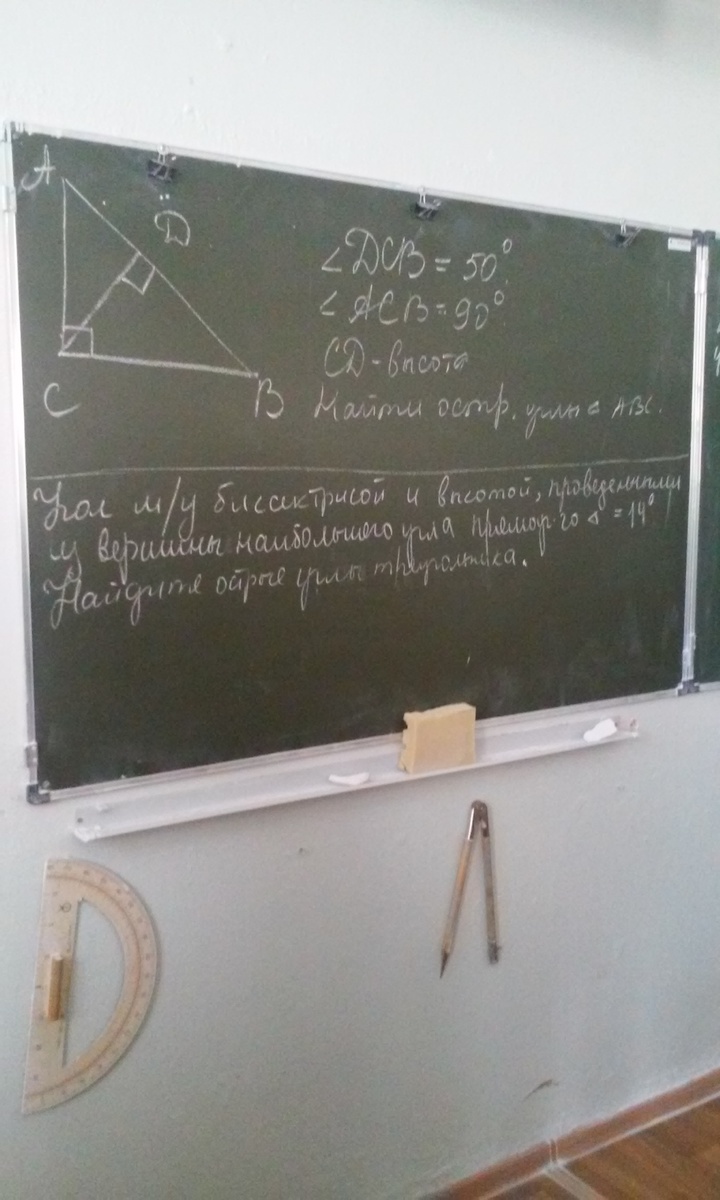 A
D
C
B
∠DCB = 50°
∠ACB = 90°
CD - высота
Найти остр. углы △ ABC.
Угол м/у биссектрисой и высотой, проведенными
из вершины наибольшего угла прямоуг. го △ = 14°
Найдите острые углы треугольника.